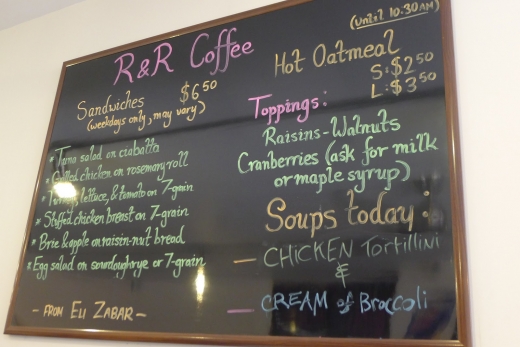 R&R Coffee
Sandwiches $6.50
(weekdays only, may vary)
* Tuna salad on ciabatta
* Grilled chicken on rosemary roll
* Turkey, lettuce, & tomato on 7-grain
* Stuffed chicken breast on 7-grain
* Brie & apple on raisin-nut bread
* Egg salad on sourdough rye or 7-grain
- FROM ELI ZABAR -
(Until 10:30AM)
Hot Oatmeal
S: $2.50
L: $3.50
Toppings:
Raisins-Walnuts
Cranberries (ask for milk
or maple syrup)
Soups today:
- CHICKEN Tortillini
&
- CREAM of Broccoli